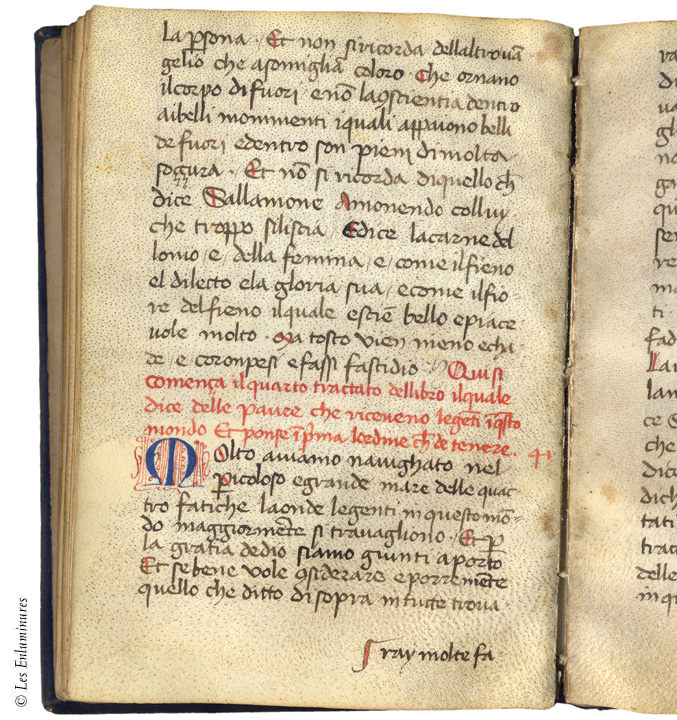 la p̱sona · Et non siricorda dellaltroua͞
gelio che asomiglia͞ coloro · Che ornano
ilcorpo di fuori · e no͞ la ꝯscientia dentro
aibelli monimenti iquali appaiono belli
de fuori edentro son pieni dimolta
soçura · Et no͞ si ricorda diquello ch͞
dice Sallamone Amonendo collui
che troppo siliscia Edice lacarne del
lomo / e / della femina / e / come ilfieno
el dilecto ela gloria sua / e come ilfio-
re delfieno ilquale escie bello epiace
uole molto · Ma tosto vien meno echi-
de / e coronpesi efassi fastidio · Quisi
comença ilquarto tractato dellibro ilquale
dice delle paure che riceueno legenti i͞q̱sto
mondo Et ponse i͞ p͛ma lordine ch͞ de tenere ·
Molto auiamo nauighato nel
p̱icoloso egrande mare delle quat
tro fatiche laonde legenti in questo mo͞-
do maggiorme͞te si trauagliono · Et p̱
la gratia dedio siamo giunti aporto
Et sebene vole ꝯsiderare eporre me͞te
quello che ditto di sopra in tute troua
ray molte fa
ra
di
ua
gh
no
ga
qu
ser
re
ma
ti ·
fad
La
lan
ce
che
dice
dich
tati
trac
delle
in q
© Les Enluminures